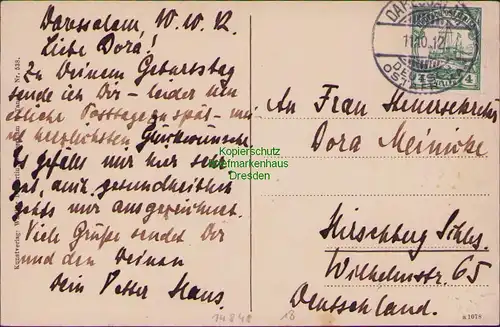 Daressalam, 10.10.12.
Liebe Dora!
Zu Deinem Geburtstag
sende ich Dir – leider um
etliche Posttage zu spät – mei-
ne herzlichsten Glückwünsche.
Es gefällt mir hier sehr
gut, auch gesundheitlich
gehts mir ausgezeichnet.
Viele Grüße sendet Dir
und den Deinen
Dein Vetter Hans
An Frau Steuersekretär
Dora Meinicke
Hirschberg Schles.
Wilhelmstr. 65
Deutschland.
11.10.12
4
Kunstverlag:
Nr. 538.
Kopierschutz
Briefmarkenhaus
Dresden
14848
18
a 1078